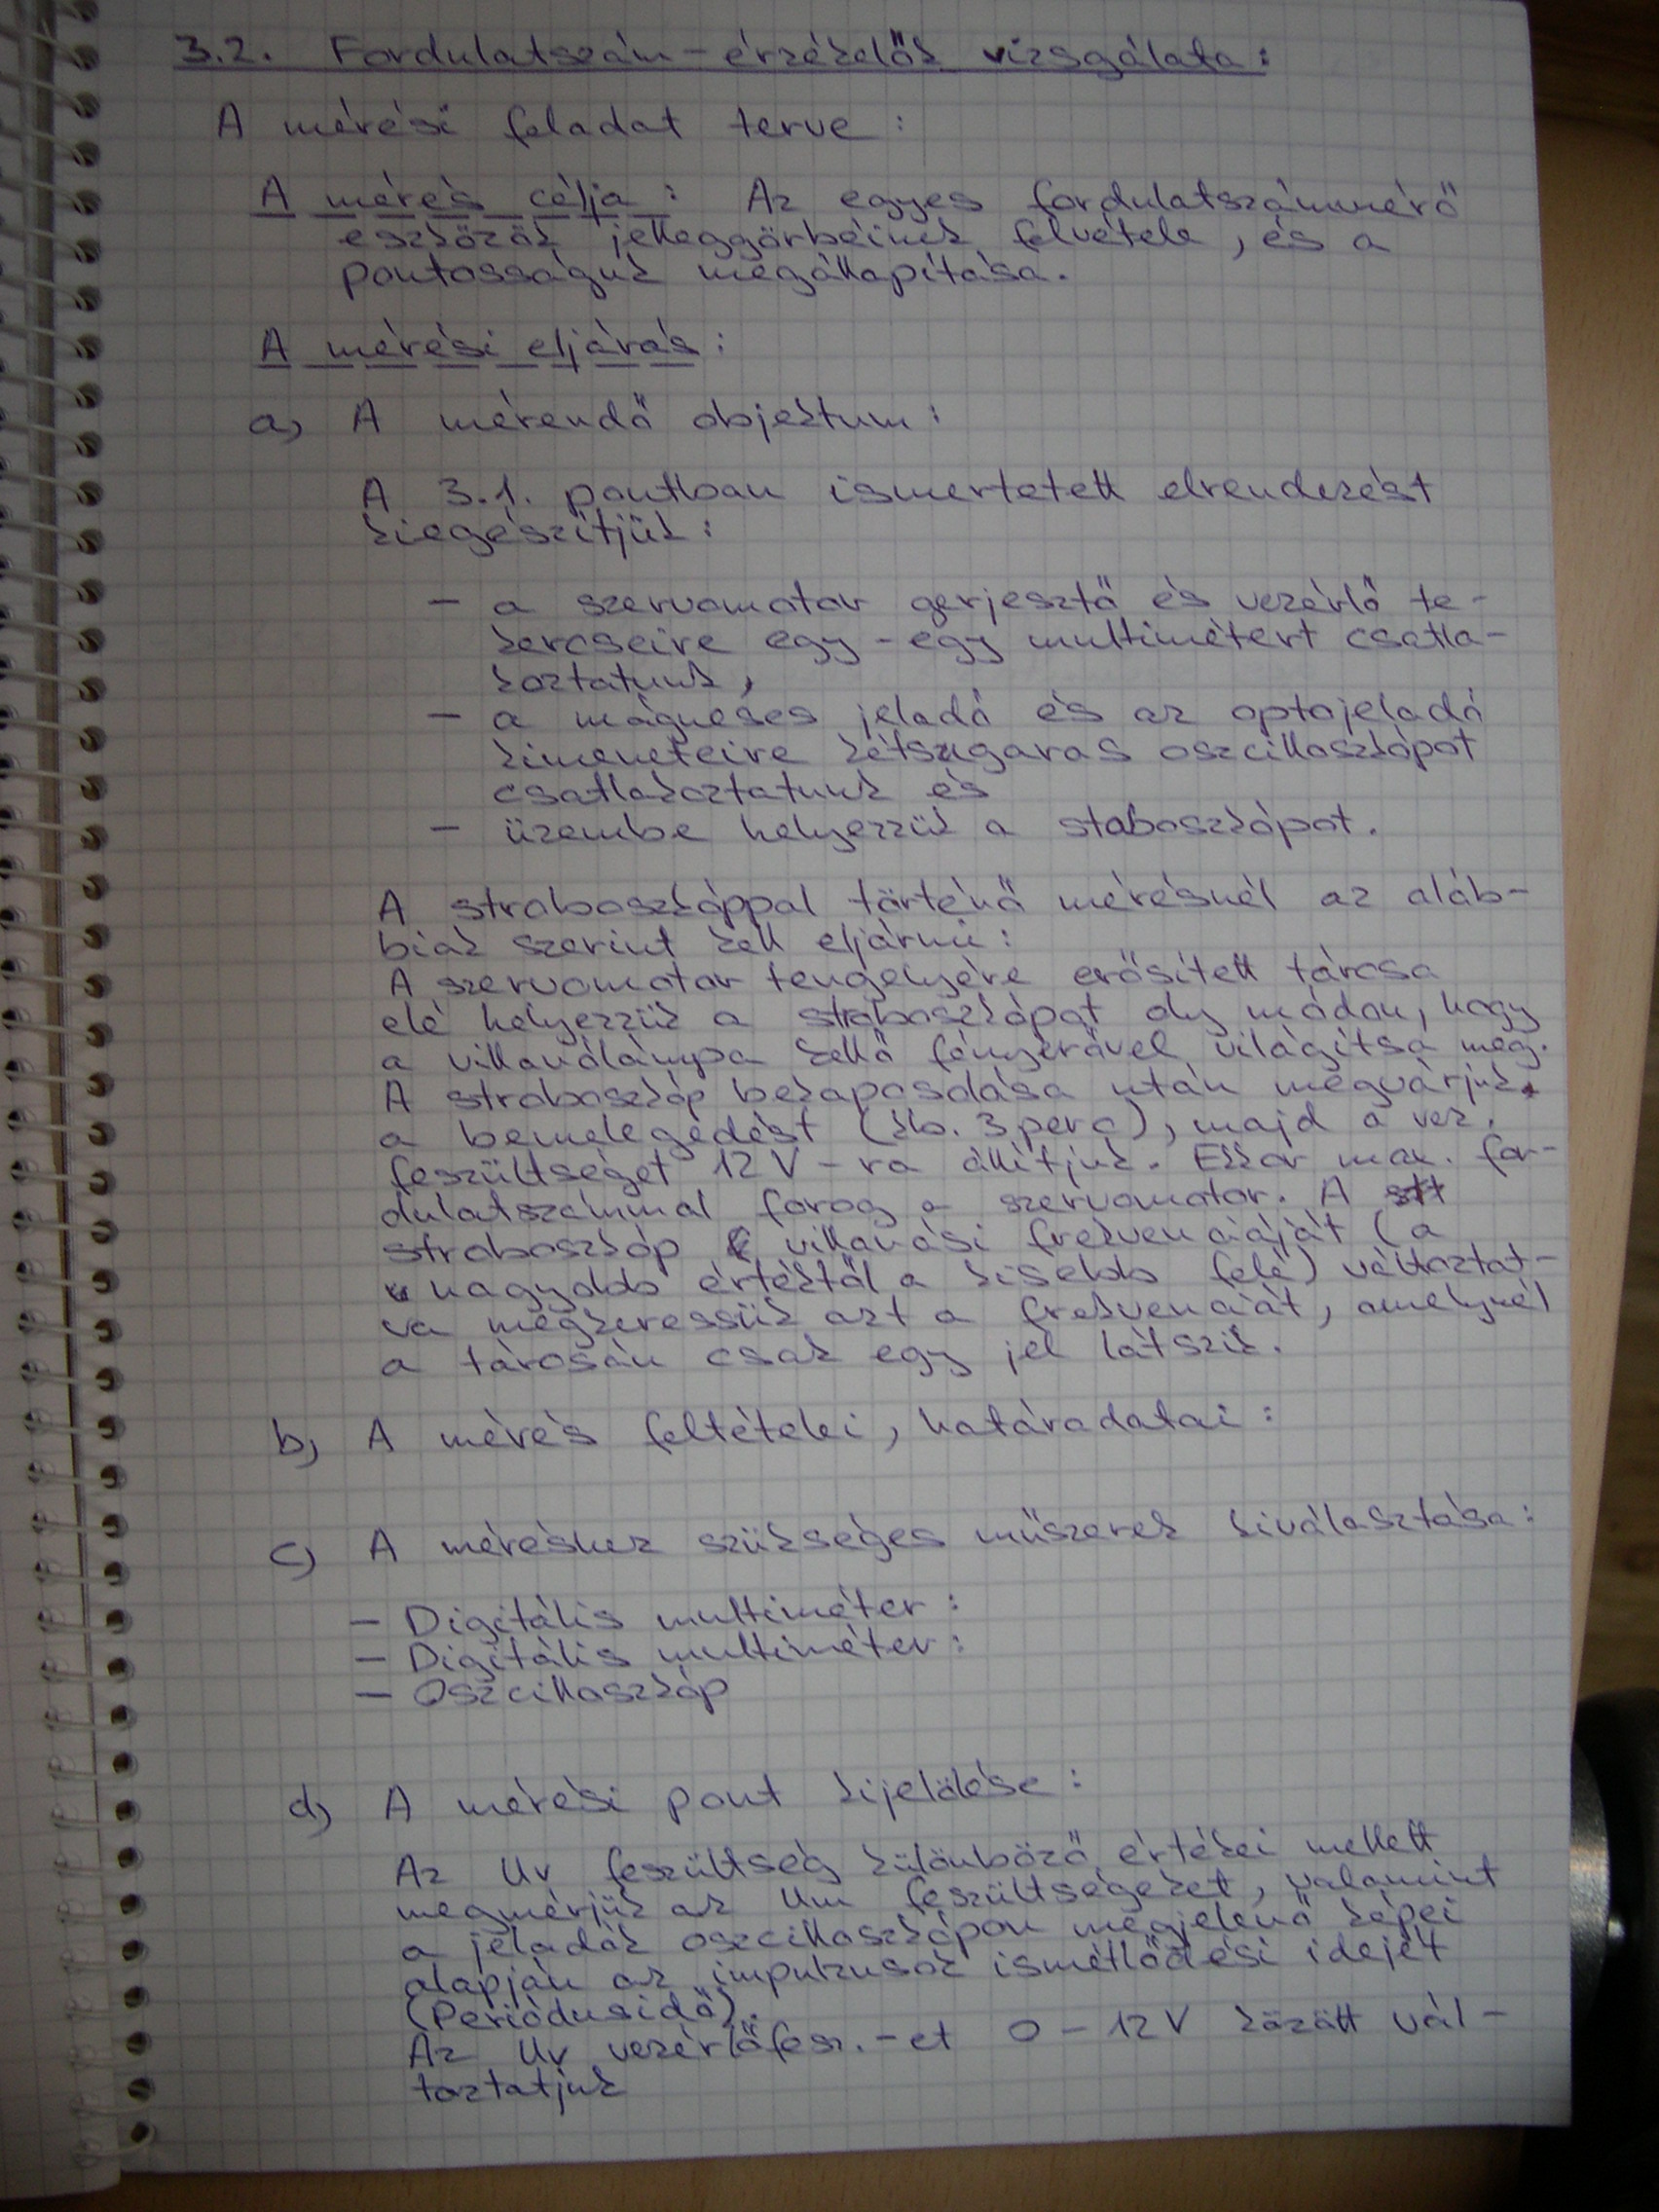 3.2. Fordulatszám-érzékelők vizsgálata:
A mérési feladat terve:
A mérés célja: Az egyes fordulatszámmérő
eszközök jelleggörbéinek felvétele, és a
pontosságuk megállapítása.
A mérési eljárás:
a) A mérendő objektum:
A 3.1. pontban ismertetett elrendezést
kiegészítjük:
- a szervomotor gerjesztő és vezérlő te-
kercseire egy-egy multimétert csatla-
koztatunk,
- a mágneses jeladó és az optojeladó
kimeneteire kétsugaras oszcilloszkópot
csatlakoztatunk és
- üzembe helyezzük a stoboszkópot.
A stroboszkóppal történő mérésnél az aláb-
biak szerint kell eljárni:
A szervomotor tengelyére erősített tárcsa
elé helyezzük a stroboszkópot oly módon, hogy
a villanólámpa kellő fényerővel világítsa meg.
A stroboszkóp bekapcsolása után megvárjuk
a bemelegedést (kb. 3 perc), majd a vez.
feszültséget 12 V-ra állítjuk. Ekkor max. for-
dulatszámmal forog a szervomotor. A
stroboszkóp villanási frekvenciáját (a
nagyobb értéktől a kisebb felé) változtat-
va megkeressük azt a frekvenciát, amelynél
a tárcsán csak egy jel látszik.
b) A mérés feltételei, határadatai:
c) A méréshez szükséges műszerek kiválasztása:
- Digitális multiméter:
- Digitális multiméter:
- Oszcilloszkóp
d) A mérési pont kijelölése:
Az Uv feszültség különböző értékei mellett
megmérjük az Um feszültségeket, valamint
a jeladók oszcilloszkópon megjelenő képei
alapján az impulzusok ismétlődési idejét
(Periódusidő).
Az Uv vezérlőfesz.-et 0-12V között vál-
toztatjuk